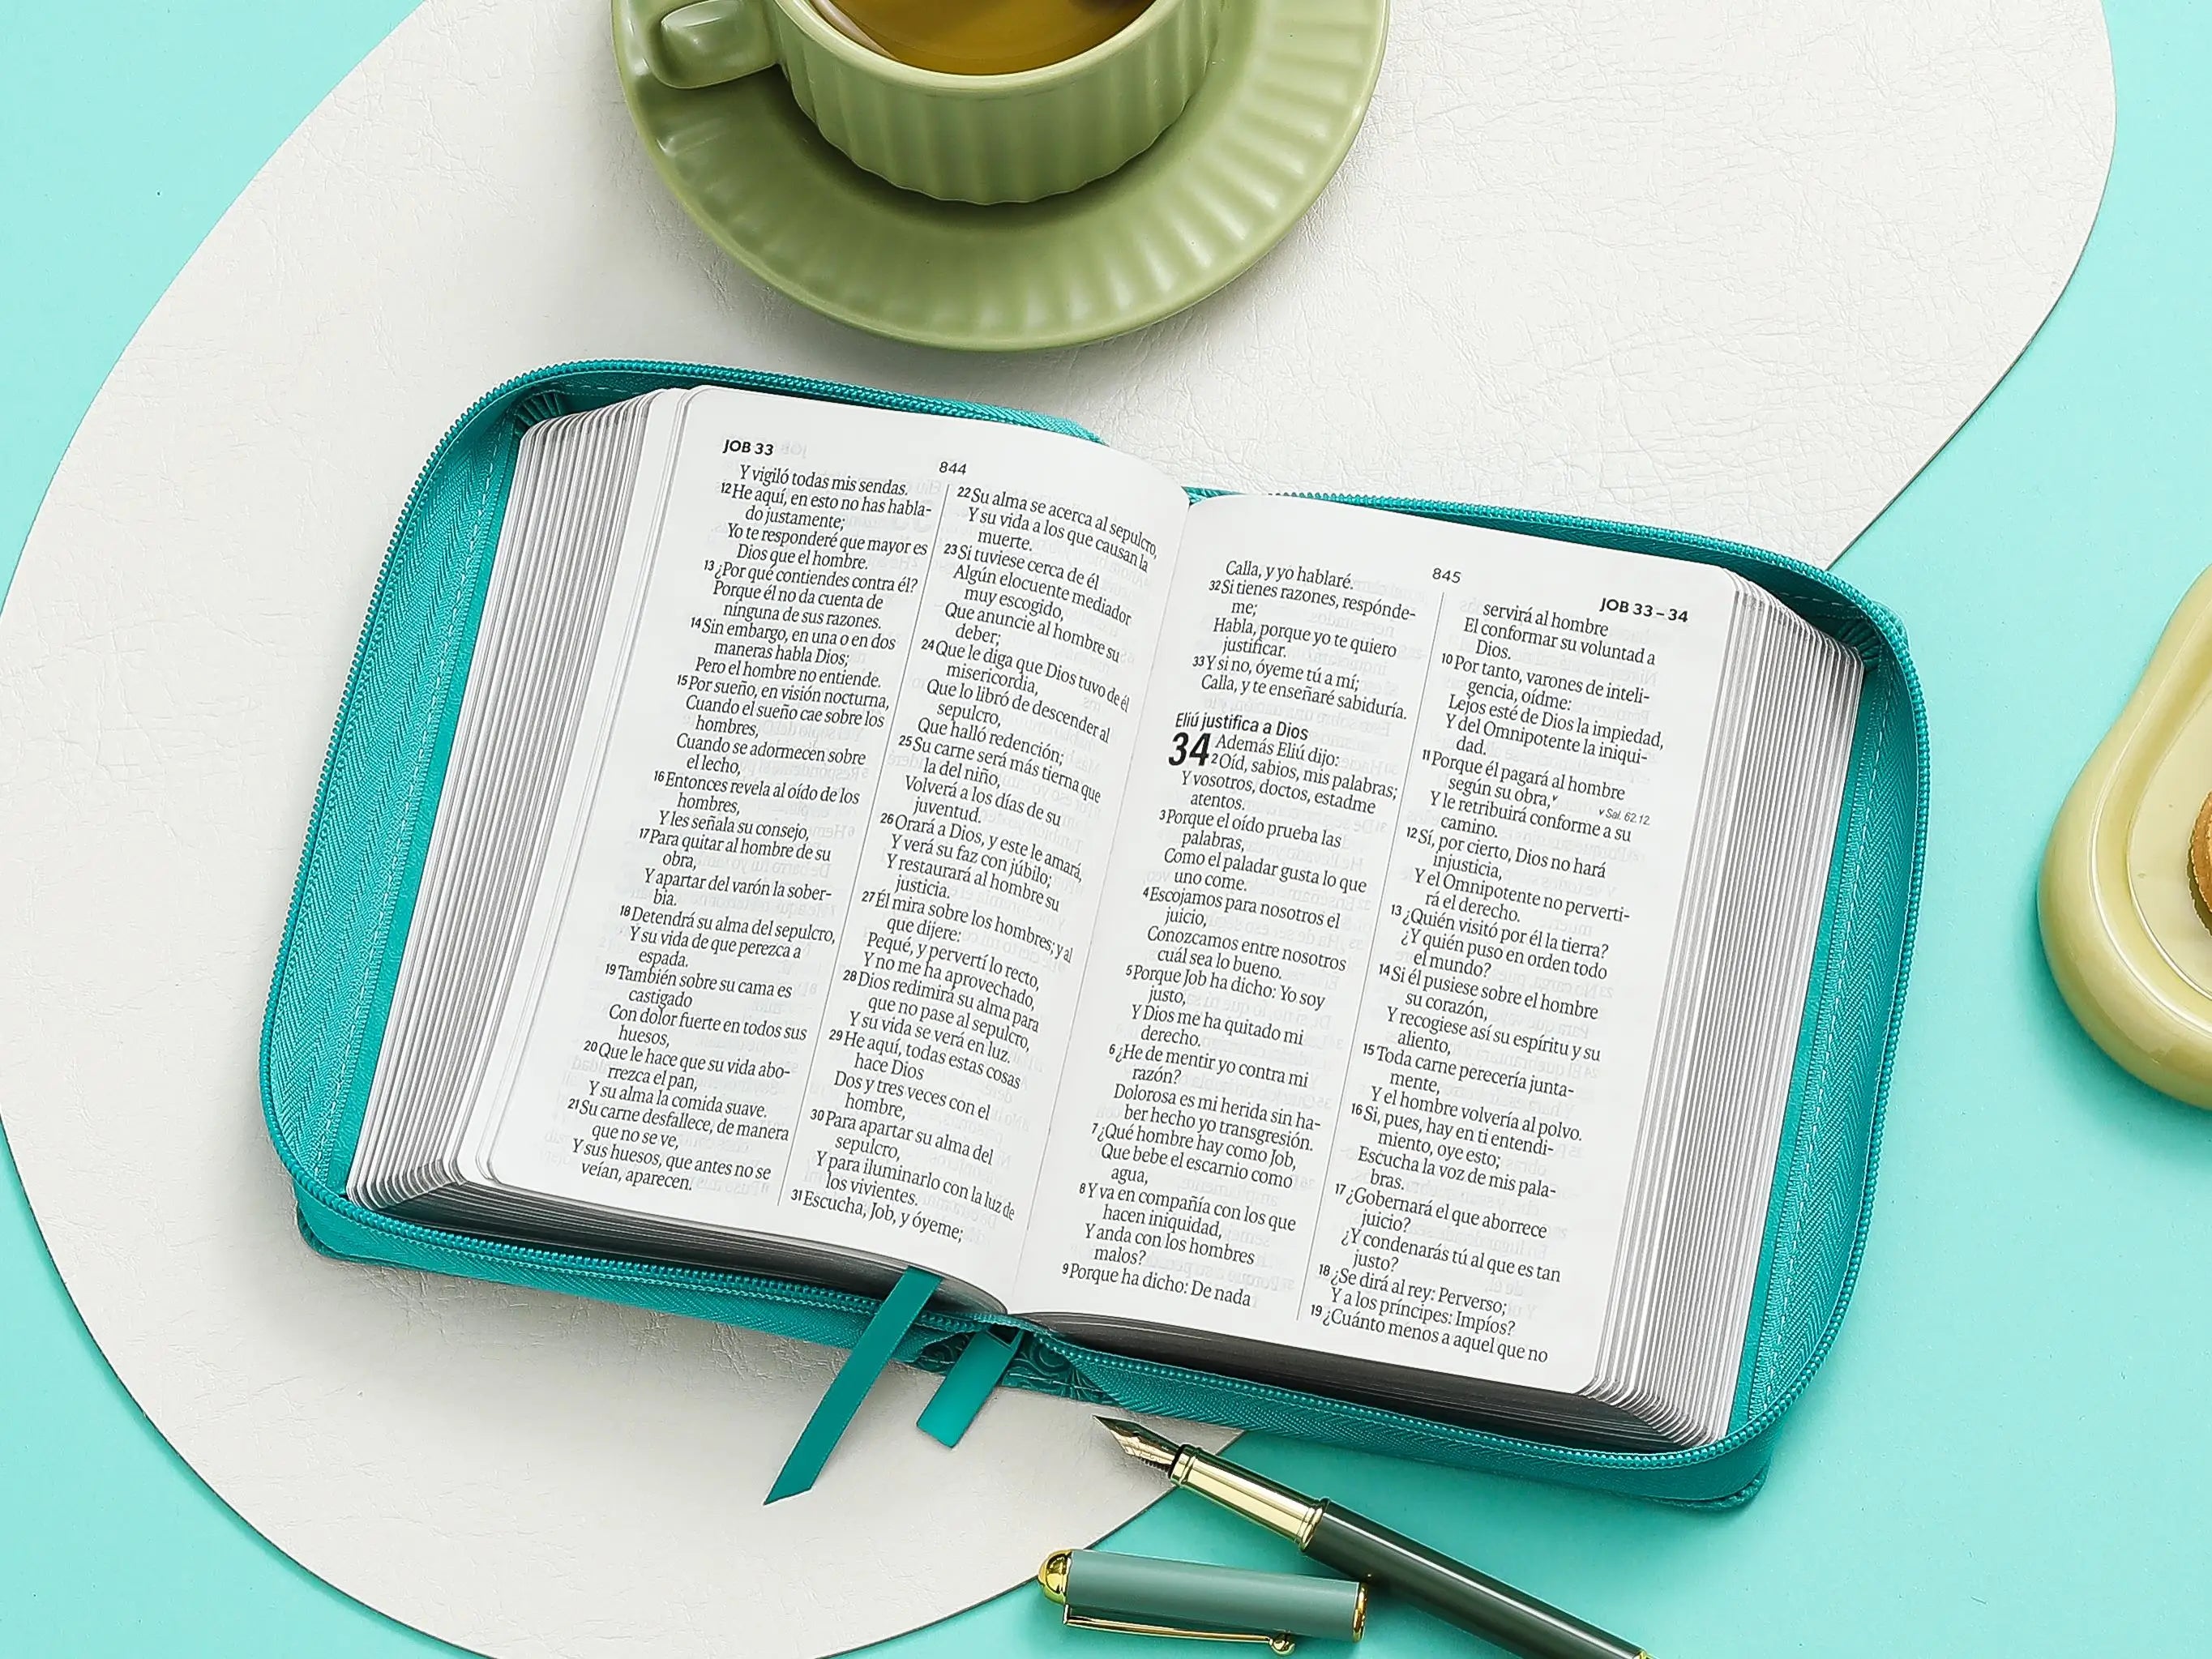 JOB 33
844
Y vigiló todas mis sendas.
12 He aquí, en esto no has habla-
do justamente;
Yo te responderé que mayor es
Dios que el hombre.
13 ¿Por qué contiendes contra él?
Porque él no da cuenta de
ninguna de sus razones.
14 Sin embargo, en una o en dos
maneras habla Dios;
Pero el hombre no entiende.
15 Por sueño, en visión nocturna,
Cuando el sueño cae sobre los
hombres,
Cuando se adormecen sobre
el lecho,
16 Entonces revela al oído de los
hombres,
Y les señala su consejo,
17 Para quitar al hombre de su
obra,
Y apartar del varón la sober-
bia.
18 Detendrá su alma del sepulcro,
Y su vida de que perezca a
espada.
19 También sobre su cama es
castigado
Con dolor fuerte en todos sus
huesos,
20 Que le hace que su vida abo-
rrezca el pan,
Y su alma la comida suave.
21 Su carne desfallece, de manera
que no se ve,
Y sus huesos, que antes no se
veían, aparecen.
22 Su alma se acerca al sepulcro,
Y su vida a los que causan la
muerte.
23 Si tuviese cerca de él
Algún elocuente mediador
muy escogido,
Que anuncie al hombre su
deber;
24 Que le diga que Dios tuvo de él
misericordia,
Que lo libró de descender al
sepulcro,
Que halló redención;
25 Su carne será más tierna que
la del niño,
Volverá a los días de su
juventud.
26 Orará a Dios, y este le amará,
Y verá su faz con júbilo;
Y restaurará al hombre su
justicia.
27 Él mira sobre los hombres; y al
que dijere:
Pequé, y pervertí lo recto,
Y no me ha aprovechado,
28 Dios redimirá su alma para
que no pase al sepulcro,
Y su vida se verá en luz.
29 He aquí, todas estas cosas
hace Dios
Dos y tres veces con el
hombre,
30 Para apartar su alma del
sepulcro,
Y para iluminarlo con la luz de
los vivientes.
31 Escucha, Job, y óyeme;
845
JOB 33 – 34
Calla, y yo hablaré.
32 Si tienes razones, respónde-
me;
Habla, porque yo te quiero
justificar.
33 Y si no, óyeme tú a mí;
Calla, y te enseñaré sabiduría.
Eliú justifica a Dios
34 Además Eliú dijo:
2 Oíd, sabios, mis palabras;
Y vosotros, doctos, estadme
atentos.
3 Porque el oído prueba las
palabras,
Como el paladar gusta lo que
uno come.
4 Escojamos para nosotros el
juicio,
Conozcamos entre nosotros
cuál sea lo bueno.
5 Porque Job ha dicho: Yo soy
justo,
Y Dios me ha quitado mi
derecho.
6 ¿He de mentir yo contra mi
razón?
Dolorosa es mi herida sin ha-
ber hecho yo transgresión.
7 ¿Qué hombre hay como Job,
Que bebe el escarnio como
agua,
8 Y va en compañía con los que
hacen iniquidad,
Y anda con los hombres
malos?
9 Porque ha dicho: De nada
servirá al hombre
El conformar su voluntad a
Dios.
10 Por tanto, varones de inteli-
gencia, oídme:
Lejos esté de Dios la impiedad,
Y del Omnipotente la iniqui-
dad.
11 Porque él pagará al hombre
según su obra,v
v Sal. 62.12.
Y le retribuirá conforme a su
camino.
12 Sí, por cierto, Dios no hará
injusticia,
Y el Omnipotente no perverti-
rá el derecho.
13 ¿Quién visitó por él la tierra?
¿Y quién puso en orden todo
el mundo?
14 Si él pusiese sobre el hombre
su corazón,
Y recogiese así su espíritu y su
aliento,
15 Toda carne perecería junta-
mente,
Y el hombre volvería al polvo.
16 Si, pues, hay en ti entendi-
miento, oye esto;
Escucha la voz de mis pala-
bras.
17 ¿Gobernará el que aborrece
juicio?
¿Y condenarás tú al que es tan
justo?
18 ¿Se dirá al rey: Perverso;
Y a los príncipes: Impíos?
19 ¿Cuánto menos a aquel que no